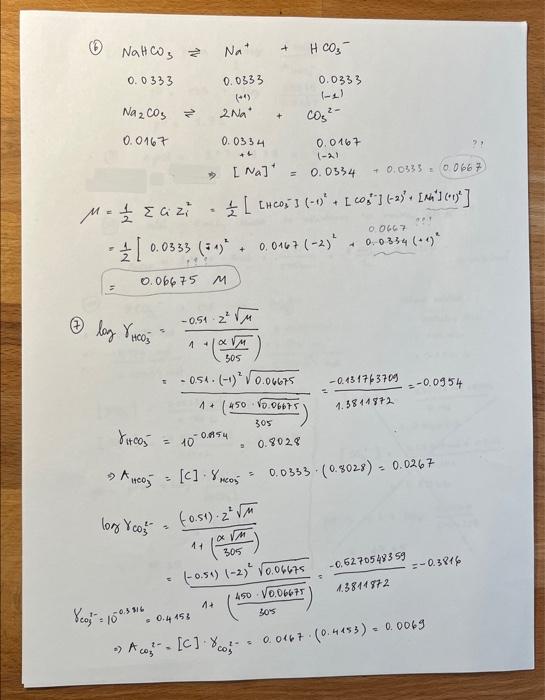 ⑥ NaHCO₃ ⇌ Na⁺ + HCO₃⁻
0.0333 0.0333 0.0333
(+1) (-1)
Na₂CO₃ ⇌ 2Na⁺ + CO₃²⁻
0.0167 0.0334 0.0167
+1 (-2) ??
⇒ [Na]⁺ = 0.0334 + 0.0333 = 0.0667
μ = 1/2 Σ Ci Zi² = 1/2 [ [HCO₃⁻] (-1)² + [CO₃²⁻] (-2)² + [Na⁺] (+1)² ]
0.0667 ???
= 1/2 [ 0.0333 (-1)² + 0.0167 (-2)² + 0.0334 (+1)²
???
= 0.06675 M
⑦ log γHCO₃⁻ = -0.51 · Z² √μ / 1 + (α √μ / 305)
= -0.51 · (-1)² √0.06675 / 1 + (450 · √0.06675 / 305) = -0.131763709 / 1.3811872 = -0.0954
γHCO₃⁻ = 10^-0.0954 = 0.8028
⇒ AHCO₃⁻ = [C] · γHCO₃⁻ = 0.0333 · (0.8028) = 0.0267
log γCO₃²⁻ = (-0.51) · Z² √μ / 1 + (α √μ / 305)
= (-0.51) (-2)² √0.06675 / 1 + (450 · √0.06675 / 305) = -0.5270548359 / 1.3811872 = -0.3816
γCO₃²⁻ = 10^-0.3816 = 0.4153
⇒ ACO₃²⁻ = [C] · γCO₃²⁻ = 0.0167 · (0.4153) = 0.0069